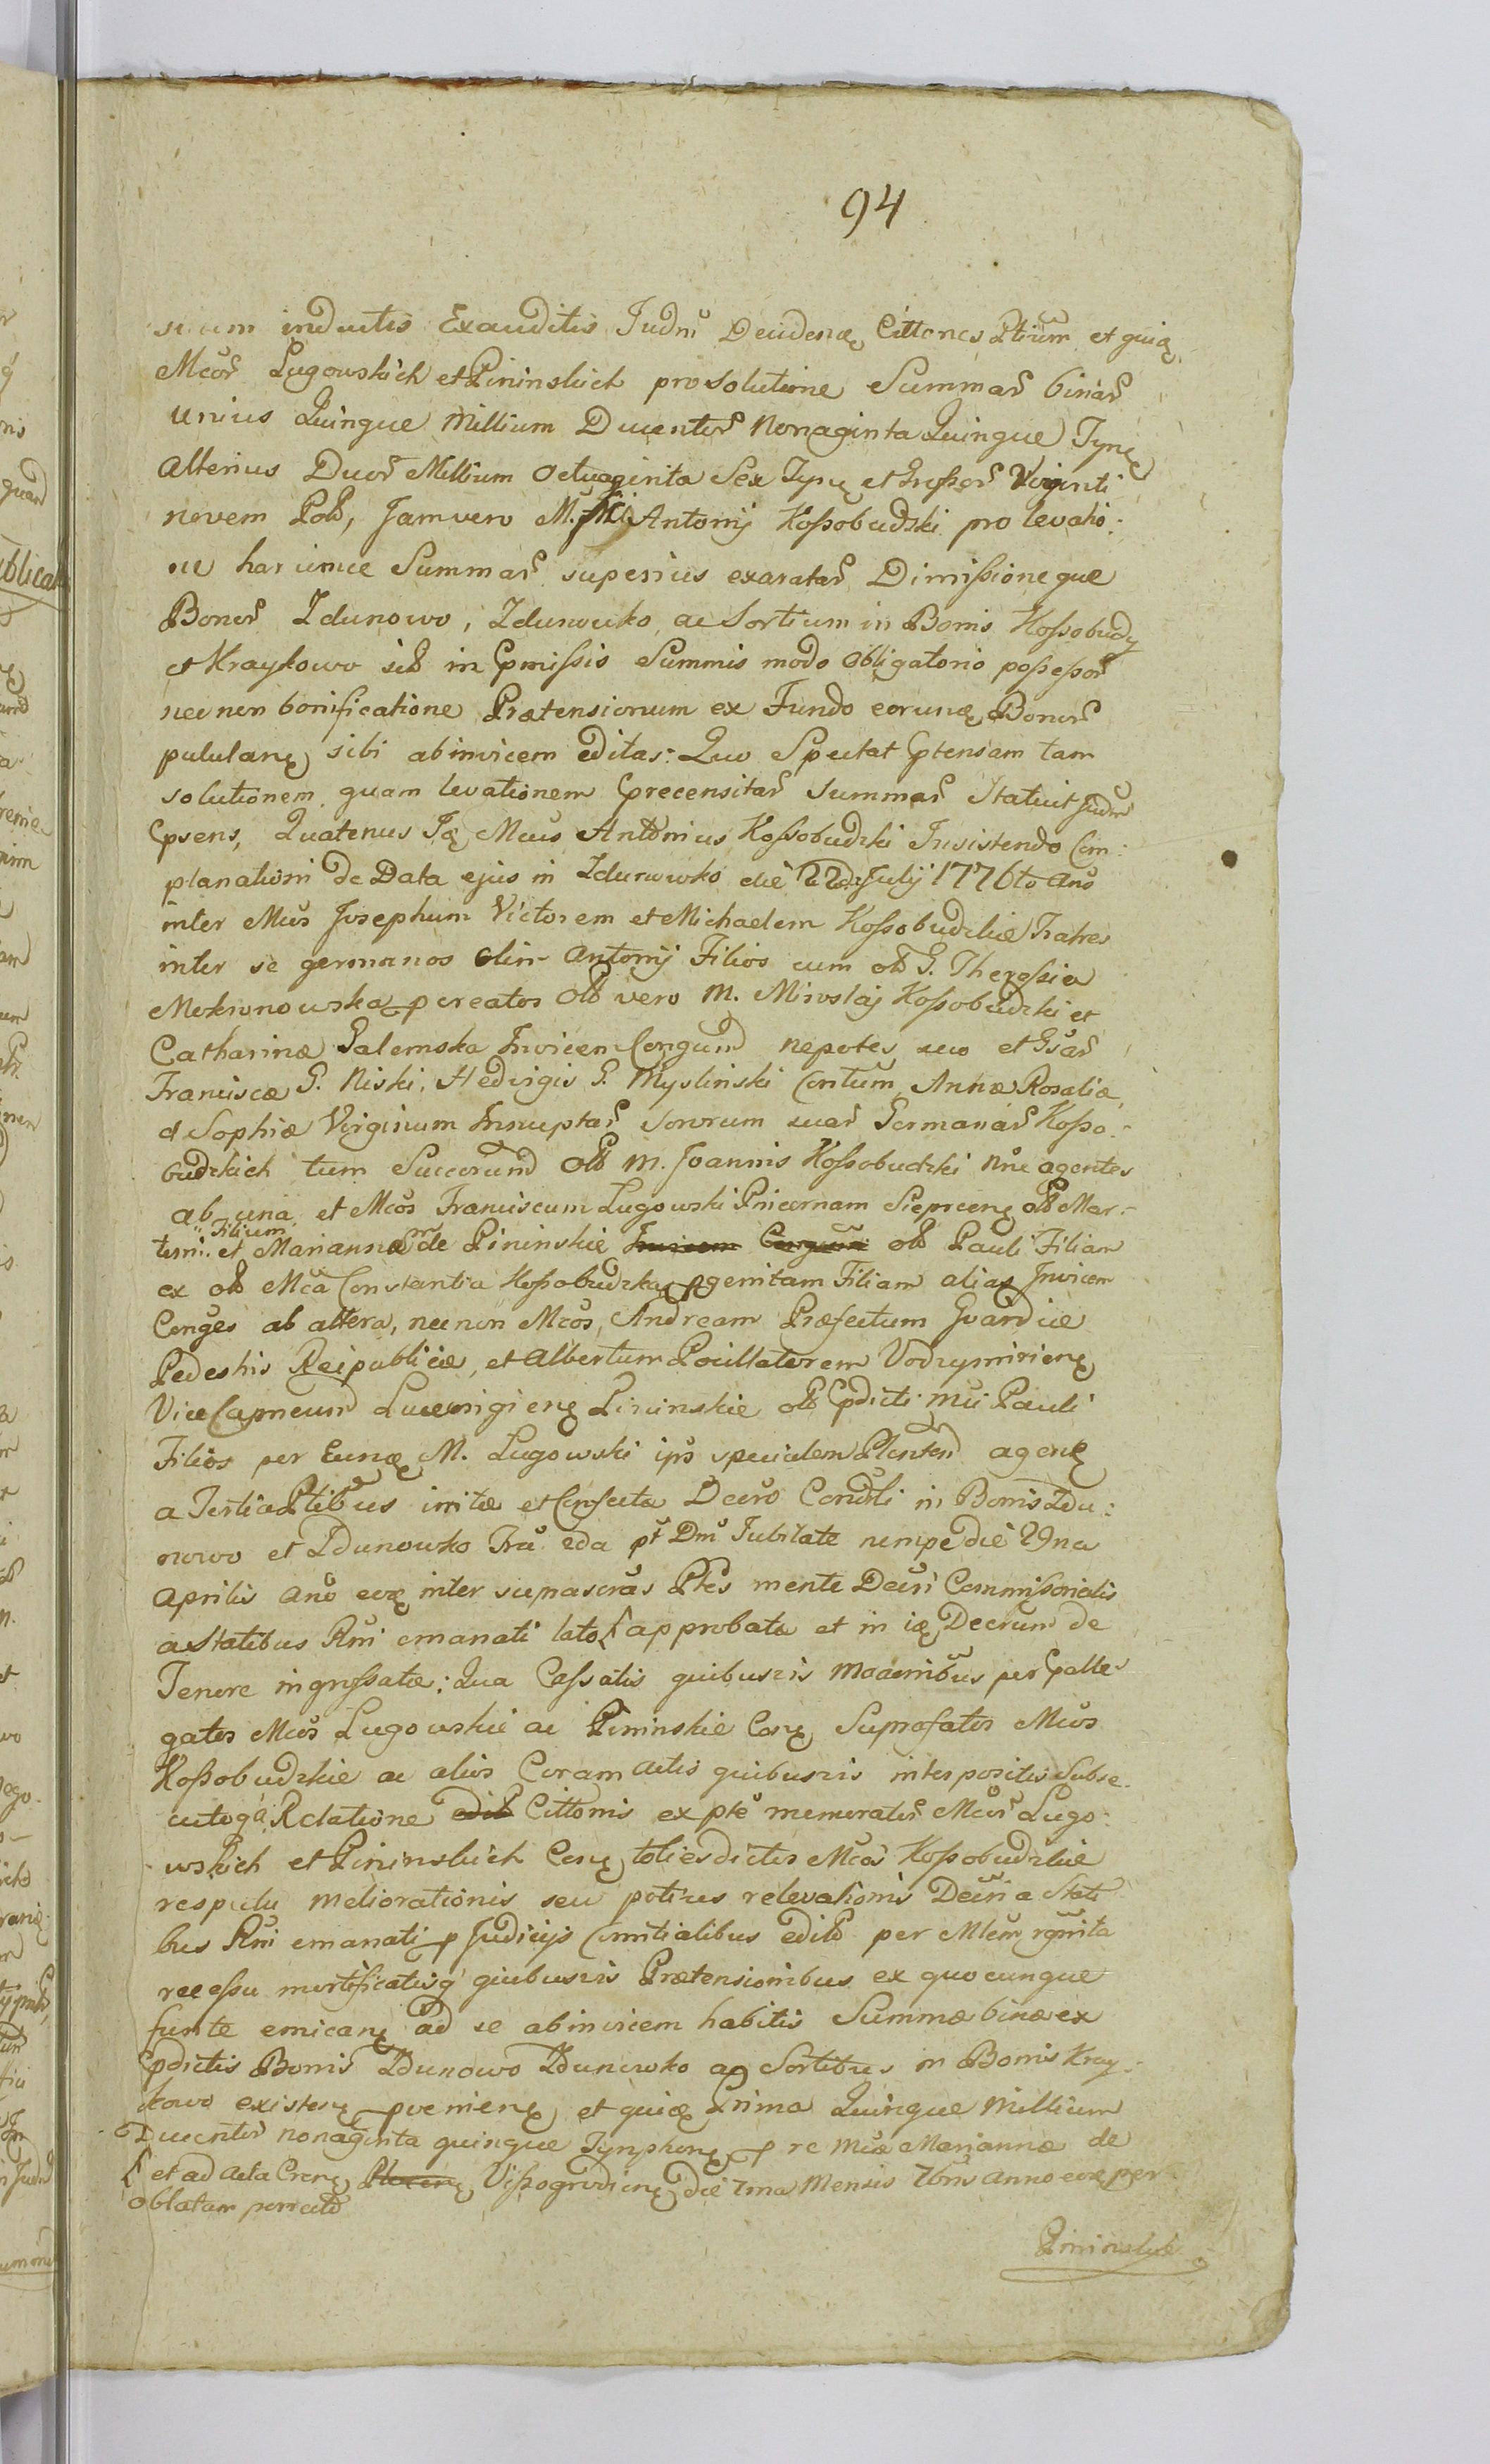 94
suum inductis Exauditis Judm Deudenæ Cittones Ptium et quidę
Mcor Lugowskich et Pininskich pro solutione Summar binar
unius Quinque Millium Ducentor Nonaginta Quinque Tynę
Alterius Duor Millium Octuaginta Sex Tynę et Grossor Viginti
novem Pol, Jam vero M. Antonij Kossobudzki pro levatio:
ne harumce Summar superius exaratar Dimissioneque
Bonor Zdunowo, Zdunowko ac Sortium in Bonis Kossobudy
et Kraykowo sib in pmissis Summis modo obligatorio possessor
nec non bonificatione Prætensionum ex Fundo eorunę Bonor
pululanę sibi abinvicem editas: Quo Spectat ptensam tam
solutionem quam levationem precensitar Summar Statuit Judm
psens, Quatenus Ię Mcus Antonius Kossobudzki Insistendo Com:
planationi de Data ejus in Zdunowko die 22da Julij 1776to Ano
inter Mcos Josephum Victorem et Michaelem Kossobudzkie Fratres
inter se germanos olim Antonij Filios cum olb G. Theressia
Mokronowska pcreatos Olb vero M. Miroslaj Kossobudzki et
Catharinæ Galemska Invicem Congum nepotes suo et Gsar
Franciscæ G. Niski, Hedvigis G. Mysliński Contum, Annæ Rosaliæ,
et Sophiæ Virginum Innuptar Sororum suar Germanar Kosso:
budzkich tum Succorum Olb M. Joannis Kossobudzki nne agentes
ab una et Mcos Franciscum Lugowski Pincernam Sieprcenę olb Mar:
tini Filium et Mariannam de Pininskie Invicem Congum olb Pauli Filiam
ex olb Mca Constantia Kossobudzka pgenitam Filiam alias Invicem
Conges ab altera, nec non Mcos, Andream Præfectum Guardiæ
Pedestris Reipublicæ, et Albertum Pocillatorem Vodzymirienę
Vice Capneum Lucemigienę Pininskie olb pdicti Mci Pauli
Filios per Eunę M. Lugowski ips specialem Plenten agenę
a Tertia Ptibus initæ et Confectæ Dcero Condli in Bonis Zdu:
nowo et Zdunowko Fra 2da pt Dm Jubilate nempe die 29na
Aprilis Ano eoę inter supascras Ptes mente Decri Commissorialis
a Statibus Rni emanati lato approbatæ et in ię Decrum de
Tenore ingrossatæ: Qua Cassatis quibusvis Moanibus per palle
gatos Mcos Lugowskie ac Pininskie Conę Suprafatos Mcos
Kossobudzkie ac alios Coram actis quibusvis interpositis Subse.
cutoq Relatione edit Cittonis ex pte memorator Mcor Lugo:
wskich et Pininskich Conę toties dictos Mcos Kossobudzkie
respectu meliorationis seu potius relevationis Decri a Stati
bus Rni emanati p Judicijs Comitialibus edito per Mlem rgnita
recessu mortificatisq quibusvis Prætensionibus ex quocunque
funte emicanę ad se abinvicem habitis Summæ binæ ex
pdictis Bonis Zdunowo Zdunowko ac Sortibus in Bonis Kray:
kowo existenę pvenienę et quię Prima Quinque Millium
Ducentor nonaginta quinque Tynphonę p re Mcæ Mariannæ de
et ad acta Crenę Plocenę Vissogrodienę die 7ma Mensis 7bris anno eoę per
oblatam porrecto
Pininskie